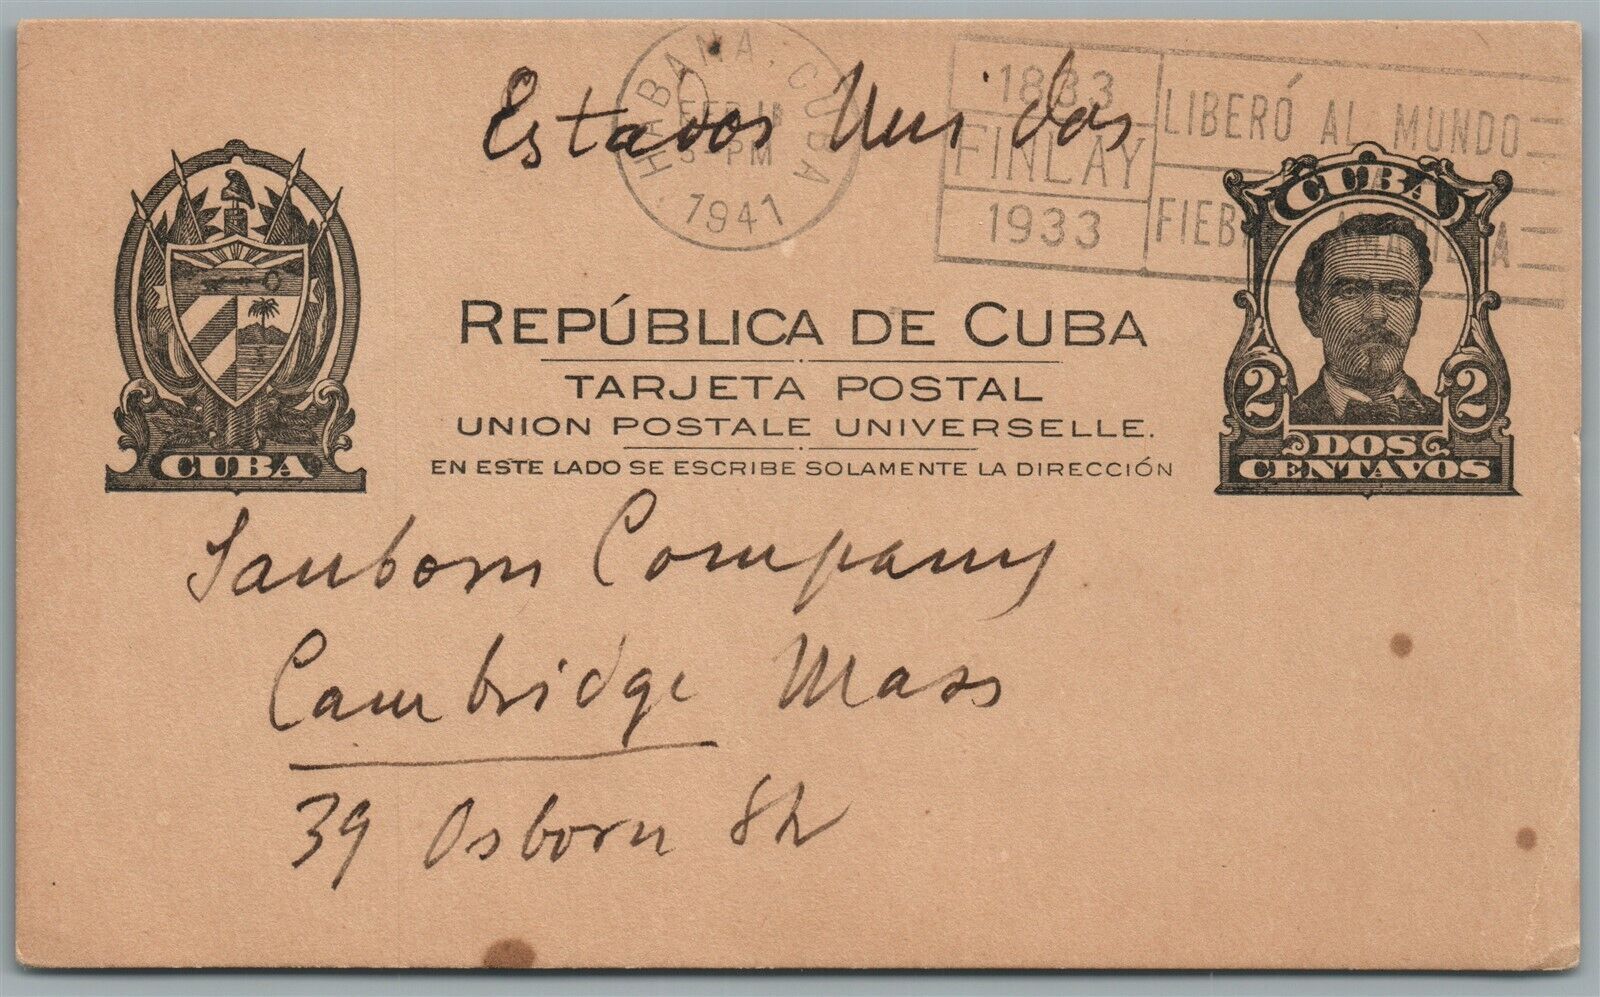 HABANA, CUBA
FEB 18
PM
1941
1833
FINLAY
1933
LIBERÓ AL MUNDO
FIEBRE AMARILLA
Estados Unidos
CUBA
REPÚBLICA DE CUBA
TARJETA POSTAL
UNION POSTALE UNIVERSELLE.
EN ESTE LADO SE ESCRIBE SOLAMENTE LA DIRECCIÓN
CUBA
2 2
DOS
CENTAVOS
Sanborn Company
Cambridge Mass
39 Osborn St